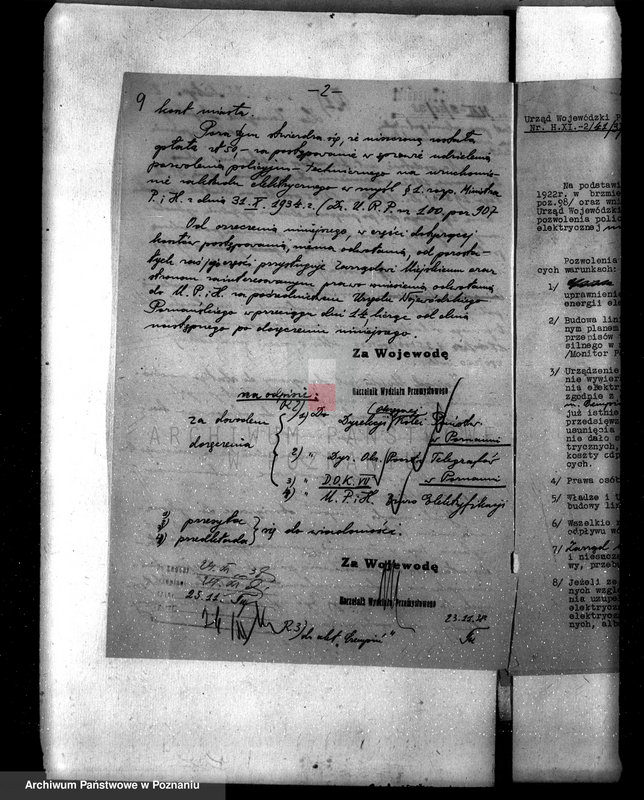 -2-
9
kont miasta.
Poza tym stwierdza się, że uiszczoną została
opłata zł 50,- za postępowanie w sprawie udzielenia
pozwolenia policyjno-technicznego na uruchomie-
nie zakładu elektrycznego w myśl § 1. rozp. Ministra
P. i H. z dnia 31. X. 1934 r. (Dz. U. R. P. nr 100, poz. 907
Od orzeczenia niniejszego, w części dotyczącej
kosztów postępowania, niema odwołania, od pozosta-
łych zaś jej części przysługuje Zarządowi Miejskiemu oraz
stronom zainteresowanym prawo wniesienia odwołania
do M. P. i H. za pośrednictwem Urzędu Wojewódzkiego
Poznańskiego w przeciągu dni 14 licząc od dnia
następnego po doręczeniu niniejszego.
Za Wojewodę
Naczelnik Wydziału Przemysłowego
na odpisie:
R 2/
za dowodem
doręczenia
1) Do Dyrekcji Okręgowej Kolei Państw.
w Poznaniu
2) " Dyr. Okr. Poczt i Telegrafów
w Poznaniu
3) " D.O.K. VII
4) " M. P. i H. Biuro Elektryfikacji
przesyła
przedkłada
się do wiadomości.
Za Wojewodę
Naczelnik Wydziału Przemysłowego
25.11.
23.11.38
R.3) do akt. "Czempiń"
ARCHIWUM PAŃSTWOWE
W POZNANIU
Urząd Wojewódzki P
Nr. H.XI.-2/41/3
Na podstawi
1922r. w brzmie
poz.98/ oraz wni
Urząd Wojewódzki
pozwolenia polic
elektrycznej
Pozwolenia
cych warunkach:
1/
uprawnienie
energii ele
2/ Budowa lini
nym planem
przepisów
silnego w
/Monitor Po
3/ Urządzenie
nie wywiera
nia elektr
zgodnie z
już istnie
przedsięwz
usunięcia
nie dało s
trycznych,
koszty odp
cych.
4/ Prawa osób
5/ Władze i U
budowy lin
6/ Wszelkie z
odpływu wó
7/ Zarząd
i nieszcz
wy, przeb
8/ Jeżeli ze
nych wzglę
nia uzupe
elektryczn
elektryczn
nych, alb
Archiwum Państwowe w Poznaniu